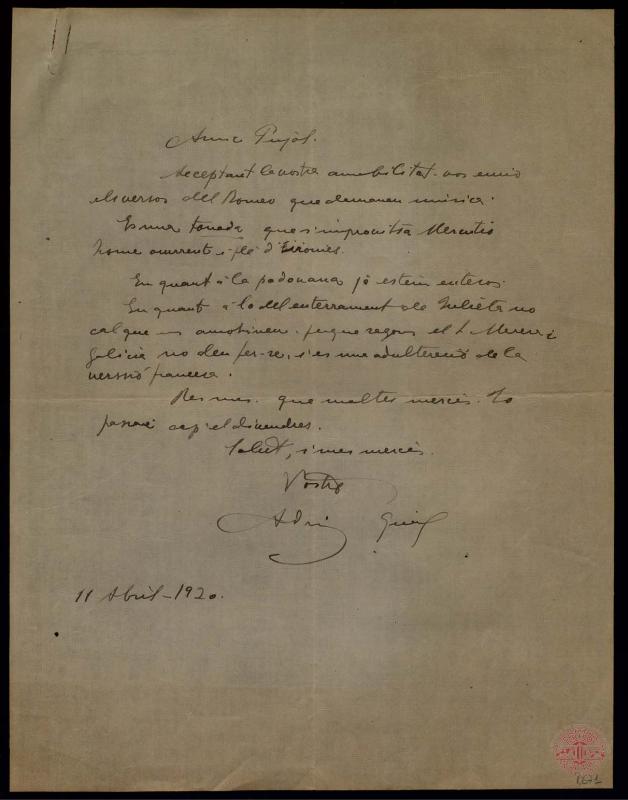 Amic Pujol.
Acceptant la vostra amabilitat vos envio
els versos del Romeo que demanen música.
Es una tonada que s'improvitsa Mercutio
home ocurrent i ple d'ironies.
En quant á la padouana ja estem entesos.
En quant á lo del enterrament de Julieta no
cal que ens amohinem. perque segons el
no deu fer-se, i es una adulteració de la
verssió francesa.
Res mes. que moltes mercès. Jo
passaré cap el divendres.
Salut, i mes mercès.
Vostre
Adrià Gual
11 Abril-1920.